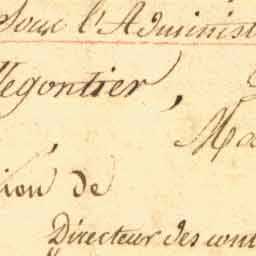 Sous l'Administ
legontier,
Ma
tion de
Directeur des cont